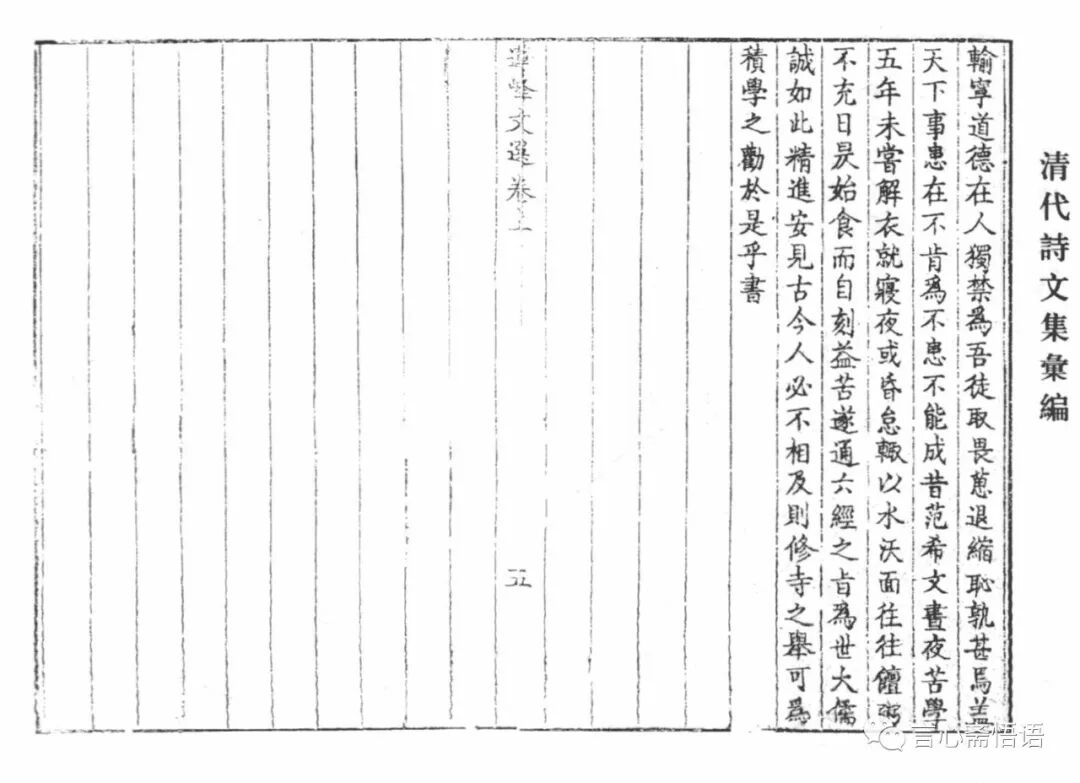 清代詩文集彙編
輸寧道德在人獨禁為吾徒取畏葸退縮恥孰甚焉蓋
天下事患在不肯為不患不能成昔范希文晝夜苦學
五年未嘗解衣就寢夜或昏怠輙以水沃面往往饘粥
不充日昃始食而自刻益苦遂通六經之旨為世大儒
誠如此精進安見古今人必不相及則修寺之舉可為
積學之勸於是乎書
峰文選卷上
五
言心斋悟语